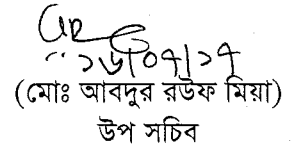 ১৬/০৭/১৭
(মোঃ আবদুর রউফ মিয়া)
উপ সচিব